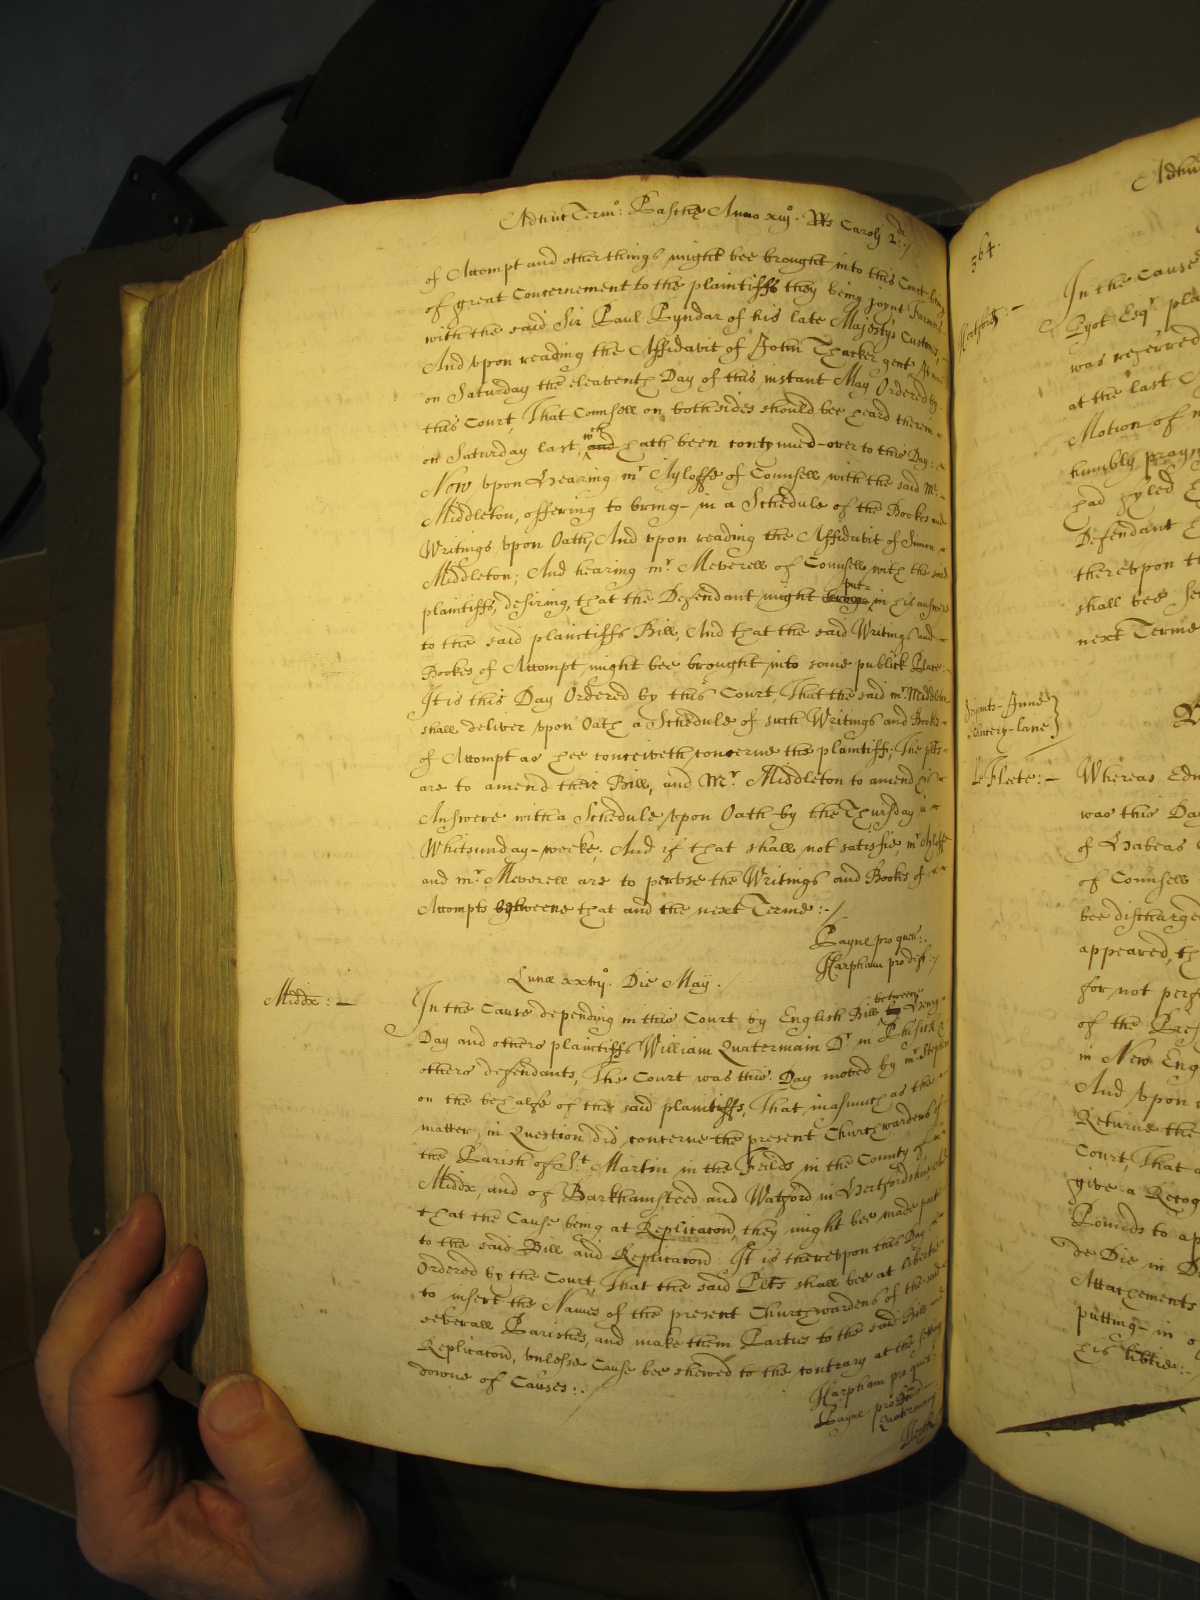 Adhuc Term: Pasche Anno xiij.º Rs Caroli 2di:/
of Accompt and other things might bee brought into this Court being
of great Concernement to the plaintiffs they being joynt Farmers
with the said Sir Paul Pyndar of his late Majestys Customs,
And vpon reading the Affidavit of John Thacker gent
on Saturday the eleaventh Day of this instant May Ordered by
this Court, That Counsell on both sides should bee heard therein
on Saturday last, and wch hath been contynued over to this Day:
Now vpon Hearing mr Ayloffe of Counsell with the said Mr
Middleton, offering to bring in a Schedule of the Bookes and
Writings vpon Oath, And vpon reading the Affidavit of Simon
Middleton; And hearing mr Meverell of Counsell with the said
plaintiffs, desiring, that the Defendant might put in his answere
to the said plaintiffs Bill, And that the said Writings and
Bookes of Accompt might bee brought into some publick Place.
It is this Day Ordered by this Court, That the said mr Middleton
shall deliver vpon Oath a Schedule of such Writings and Bookes
of Accompt as hee conceiveth concerne the plaintiff; The plts
are to amend their Bill, and Mr Middleton to amend his
Answere with a Schedule vpon Oath by the Thursday in
Whitsunday-weeke; And if that shall not satisfie, mr Ayloffe
and mr Meverell are to peruse the Writings and Bookes of
Accompts betweene that and the next Terme:/
Payne pro quer:
Harpham pro def:/
Lunæ xxvijº. Die May.
Middx:
In the Cause depending in this Court by English Bill betweene Henry
Day and others plaintiffs William Quatermain Dr in Phisick &
others defendants, The Court was this Day moved by mr Stephens
on the behalfe of the said plaintiffs, That inasmuch as the
matter, in Question did concerne the present Churchwardens of
the Parish of St Martin in the Feilds in the County of
Middx, and of Barkhamsteed and Watford in Hertfordshire, and
that the Cause being at Replicacon, they might bee made parties
to the said Bill and Replicacon: It is therevpon this Day
Ordered by the Court, That the said Plts shall bee at libertie
to insert the Names of the present Churchwardens of the said
severall Parishes, and make them Parties to the said Bill and
Replicacon, vnlesse Cause bee shewed to the contrary at the setting
downe of Causes:/
Harpham pro quer:
Payne pro
Quatermain
Adhuc
364.
Hertford:
In the Cause
Pyot Esqr pla
was referred
at the last
Motion of m
humbly prayin
had fyled
Defendant
therevpon
shall bee
next Terme
Serjants-Inne
Chancery-lane
Le Fleete:
Whereas Edw
was this Day
of Habeas
of Counsell
bee discharged
appeared, th
for not perf
of the
in New Eng
And vpon
Returne the
Court, That
give a Recog
Pounds to ap
de Die in D
Attachements
putting in
his libtie: